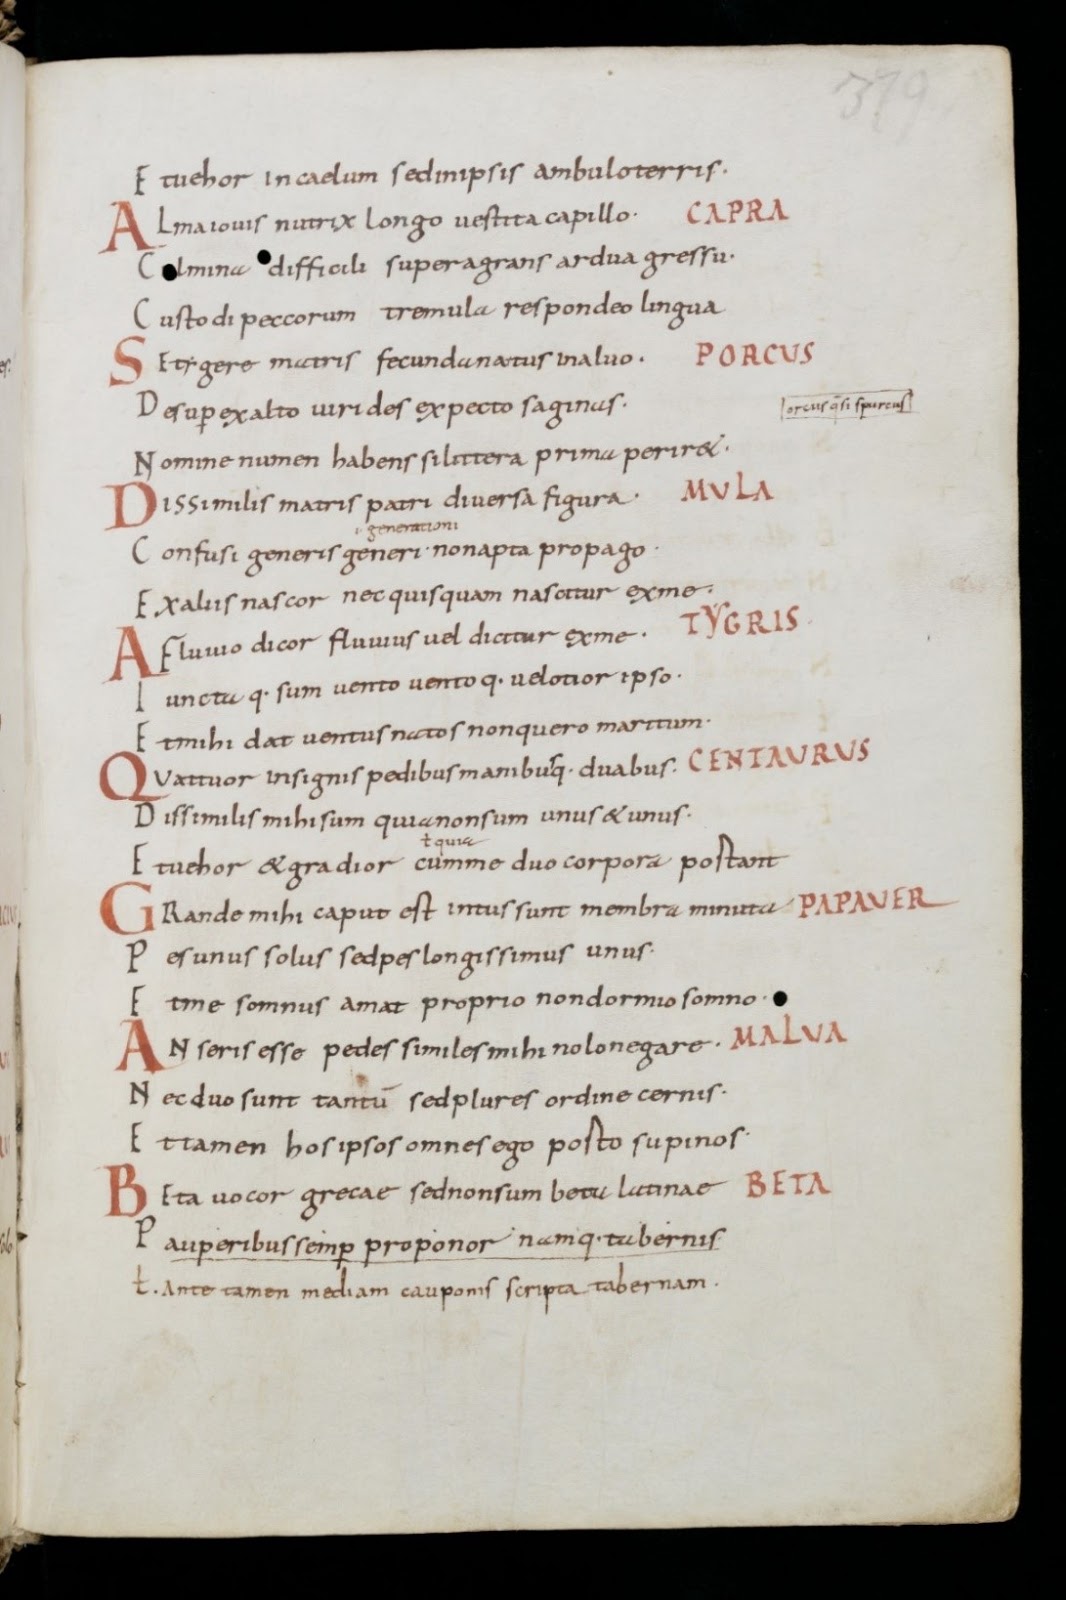 379
Et uehor in caelum sed in ipsis ambulo terris.
ALma iouis nutrix longo uestita capillo. CAPRA
Culmina difficili superagrans ardua gressu.
Custodi peccorum tremula respondeo lingua
SEtigere matris fecunda natus in aluo. PORCUS
Desuꝑ ex alto uirides expecto saginas.
orcus q̄si spurcus
Nomine numen habens si littera prima perir&.
DISSimilis matris patri diuersa figura. MULA
i. generationi
Confusi generis generi. non apta propago.
Ex aliis nascor nec quisquam nascitur ex me.
A Fluuio dicor fluuius uel dicitur ex me. TYGRIS
Iuncta q. sum uento uento q. velotior ipso.
Et mihi dat uentus natos non quero maritum.
QUattuor insignis pedibus manibusq. duabus. CENTAURUS
Dissimilis mihi sum quia non sum unus & unus.
ł quia
Et uehor & gradior cum me duo corpora postant
GRande mihi caput est intus sunt membra minuta PAPAUER
Pes unus solus sed pes longissimus unus.
Et me somnus amat proprio non dormio somno.
ANseris esse pedes similes mihi nolo negare. MALUA
Nec duo sunt tantū sed plures ordine cernis.
Et tamen hos ipsos omnes ego posto supinos.
BEta uocor grecae sed non sum beta latinae BETA
Pauꝑeribus semꝑ proponor namq. tabernis
ł. Ante tamen mediam cauponis scripta tabernam.